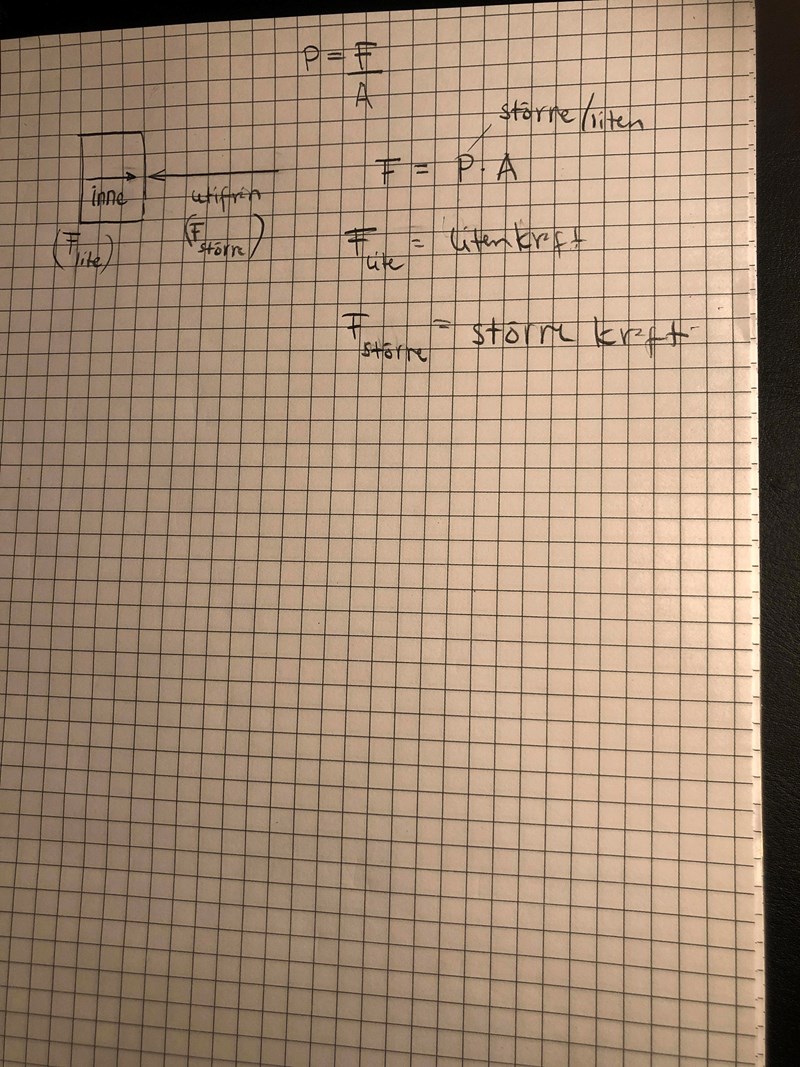 P = F
A
större/liten
F = P · A
inne
utifrån
(F lite)
(F större)
F lite = liten kraft
F större = större kraft